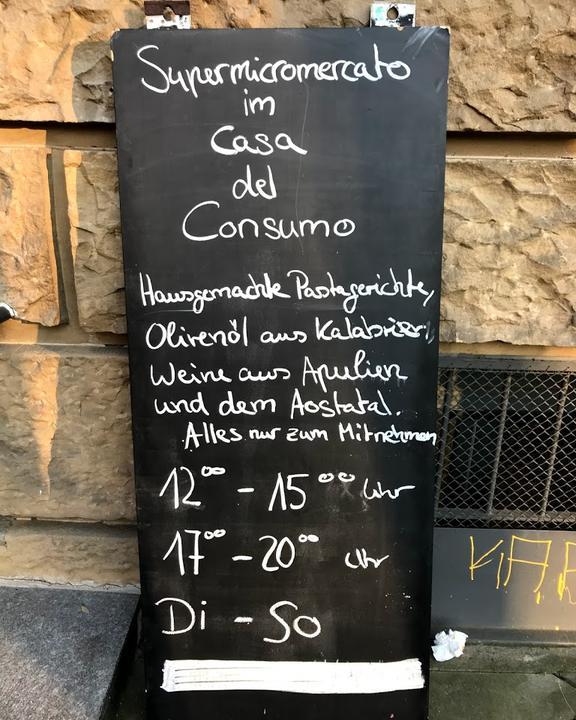 Supermicromercato
im
Casa
del
Consumo
Hausgemachte Pastagerichte,
Olivenöl aus Kalabrien,
Weine aus Apulien
und dem Aostatal.
Alles nur zum Mitnehmen
12⁰⁰ - 15⁰⁰ Uhr
17⁰⁰ - 20⁰⁰ Uhr
Di - So